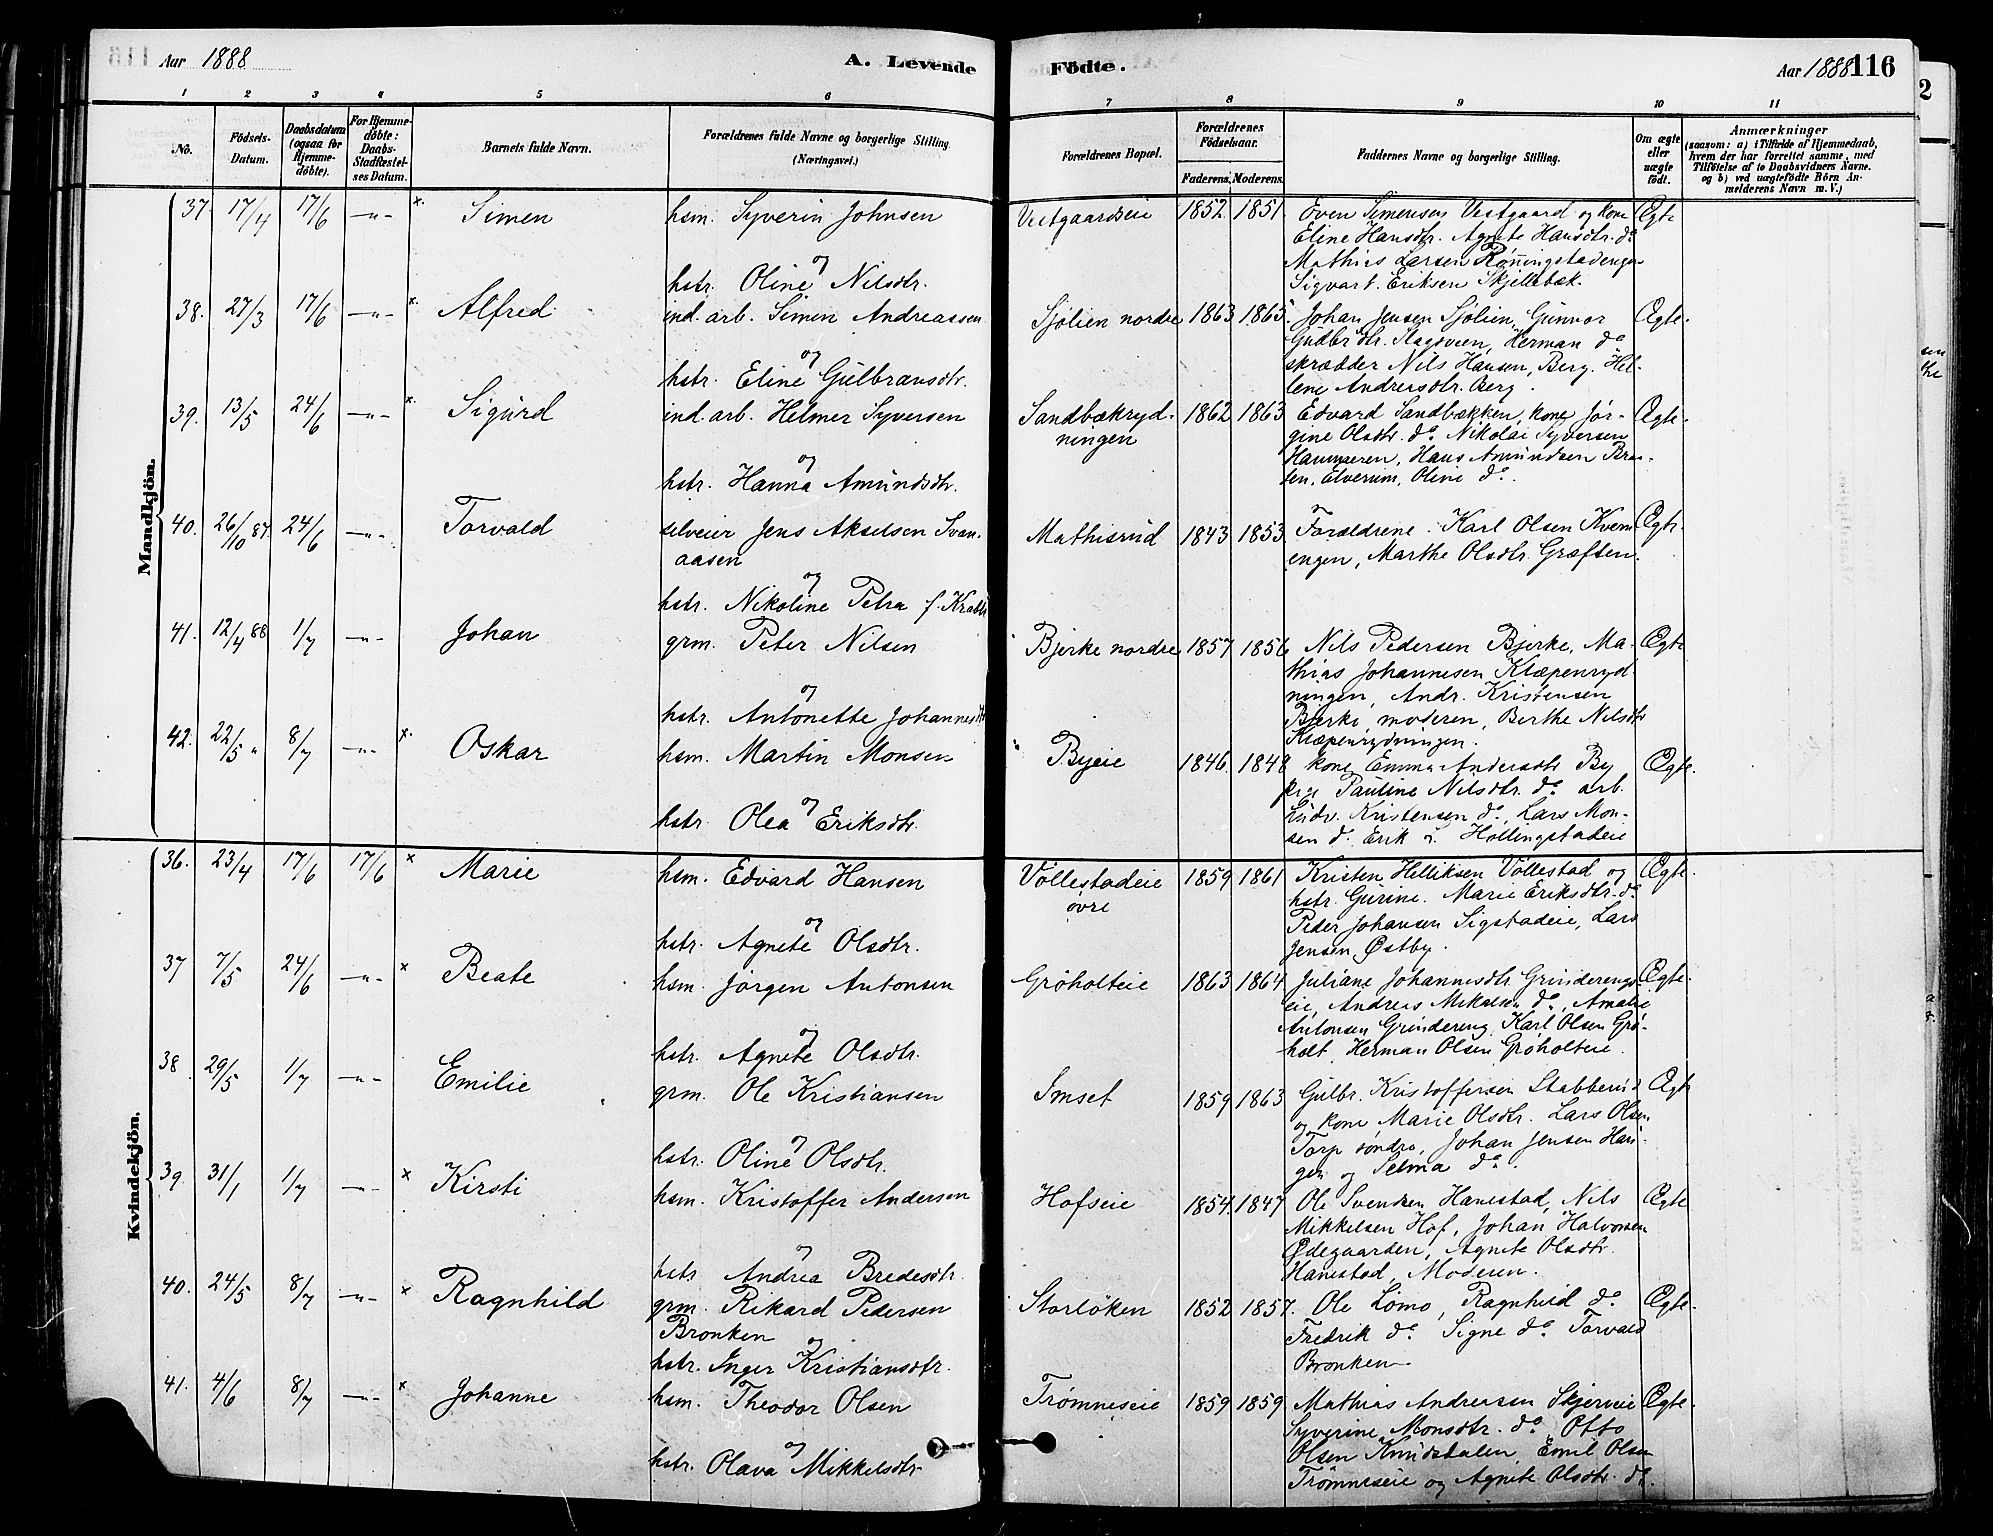 Aar 1888
A. Levende
Födte.
Aar 1888 116
1 2 3 4 5 6 7 8 9 10 11
No.
Födsels-
Datum.
Daabsdatum
(ogsaa for
Hjemme-
döbte).
For Hjemme-
döbte:
Daabs-
Stadfæstel-
ses Datum.
Barnets fulde Navn.
Forældrenes fulde Navne og borgerlige Stilling
(Næringsvei.)
Forældrenes Bopæl.
Forældrenes
Födselsaar.
Faderens. Moderens.
Faddernes Navne og borgerlige Stilling.
Om ægte
eller
uægte
födt.
Anmærkninger
(saasom: a) i Tilfælde af Hjemmedaab,
hvem der har forrettet samme, med
Tilföielse af to Daabsvidners Navne.
og b) ved uægtefödte Börn An-
melderens Navn m. V.)
Mandkjön.
37. 17/4 17/6 -"- x. Simen
hsm. Syverin Johnsen
og
hstr. Oline Nilsdtr.
Vestgaardseie 1852 1851
Even Simensen Vestgaard og kone
Eline Hansdtr. Agnete Hansdtr. do
Mathias Larsen Rönningstadengen
Sigvart Eriksen Skjellebæk.
Ægte
38. 27/3 17/6 -"- x. Alfred
ind. arb. Simen Andreassen
og
hstr. Eline Gulbransdtr.
Sjölien nordre 1863 1865
Johan Jensen Sjölien, Gunnor
Gudbrdtr. Stagsveen, Herman do
skrædder Nils Hansen, Berg. Hel-
lene Andreasdtr. Berg.
Ægte.
39. 13/5 24/6 -"- x. Sigurd
ind. arb. Helmer Syversen
og
hstr. Hanna Amundsdtr.
Sandbækryd-
ningen 1862 1863
Edvard Sandbækken, kone Jör-
gine Olsdtr. do. Nikolai Syversen
Hammeren, Hans Amundsen Bra-
ten, Elverum, Oline do.
Ægte.
40. 26/10 87. 24/6 -"- Torvald
selveier Jens Akselsen Svan-
aasen
og
hstr. Nikoline Petra f. Krabb
Mathisrud 1843 1853
Forældrene. Karl Olsen Kvern
engen, Marthe Olsdtr. Græften.
Ægte.
41. 12/4 88 1/7 -"- Johan
grm. Peter Nilsen
og
hstr. Antonette Johannesdtr
Bjerke nordre 1857 1856
Nils Pedersen Bjerke, Ma-
thias Johannesen Klæpenryd-
ningen, Andr. Kristensen
Bjerke, moderen, Berthe Nilsdtr
Klæpenrydningen.
Ægte
42. 22/5 " 8/7 -"- x. Oskar
hsm. Martin Monsen
og
hstr. Olea Eriksdtr.
Byeie 1846. 1848
kone Emma Andersdtr By
pige Pauline Nilsdtr. do arb.
Ludv. Kristensen do, Lars Mon-
sen do. Erik L. Hollingstadeie
Ægte.
Kvindekjön.
36. 23/4 17/6 17/6 x Marie
hsm. Edvard Hansen
og
hstr. Agnete Olsdtr.
Vollestadeie
övre 1859 1861
Kristen Helliksen Vollestad og
hstr. Gurine. Marie Eriksdtr. do
Peder Johansen Sigstadeie, Lars
Jensen Østby.
Ægte.
37 7/5 24/6 -"- x Beate
hsm. Jörgen Antonsen
og
hstr. Agnete Olsdtr.
Gröholteie 1863 1864
Juliane Johannesdtr Grindereng-
eie, Andreas Mikalsen do, Amalie
Antonsen Grindereng, Karl Olsen Grö-
holt, Herman Olsen Gröholteie.
Ægte.
38. 29/5 1/7 -"- Emilie
grm. Ole Kristiansen
og
hstr. Oline Olsdtr.
Imset 1859 1863
Gulbr. Kristoffersen Stabberud
og kone Marie Olsdtr. Lars Olsen
Torp söndre, Johan Jensen Han-
gen og Selma do.
Ægte
39 31/1 1/7 -"- x Kirsti
hsm. Kristoffer Andersen
og
hstr Andrea Bredesdtr.
Hofseie 1854. 1847
Ole Svendsen Hanestad, Nils
Mikkelsen Hof, Johan Halvorsen
Ødegaarden, Agnete Olsdtr.
Hanestad, Moderen.
Ægte
40. 24/5 8/7 -"- x Ragnhild
grm. Rikard Pedersen
Bronken
og
hstr. Inger Kristiansdtr.
Storlöken 1852 1857.
Ole Lömo, Ragnhild do.
Fredrik do. Signe do. Torvald
Bronken
Ægte.
41. 4/6 8/7 -"- x Johanne
hsm. Theodor Olsen
og
hstr. Olava Mikkelsdtr
Trömneseie 1859 1859
Mathias Andersen Skjerveie
Syverine Monsdtr. do Otto
Olsen Knudsdalen, Emil Olsen
Trömneseie og Agnete Olsdtr. do.
Ægte.